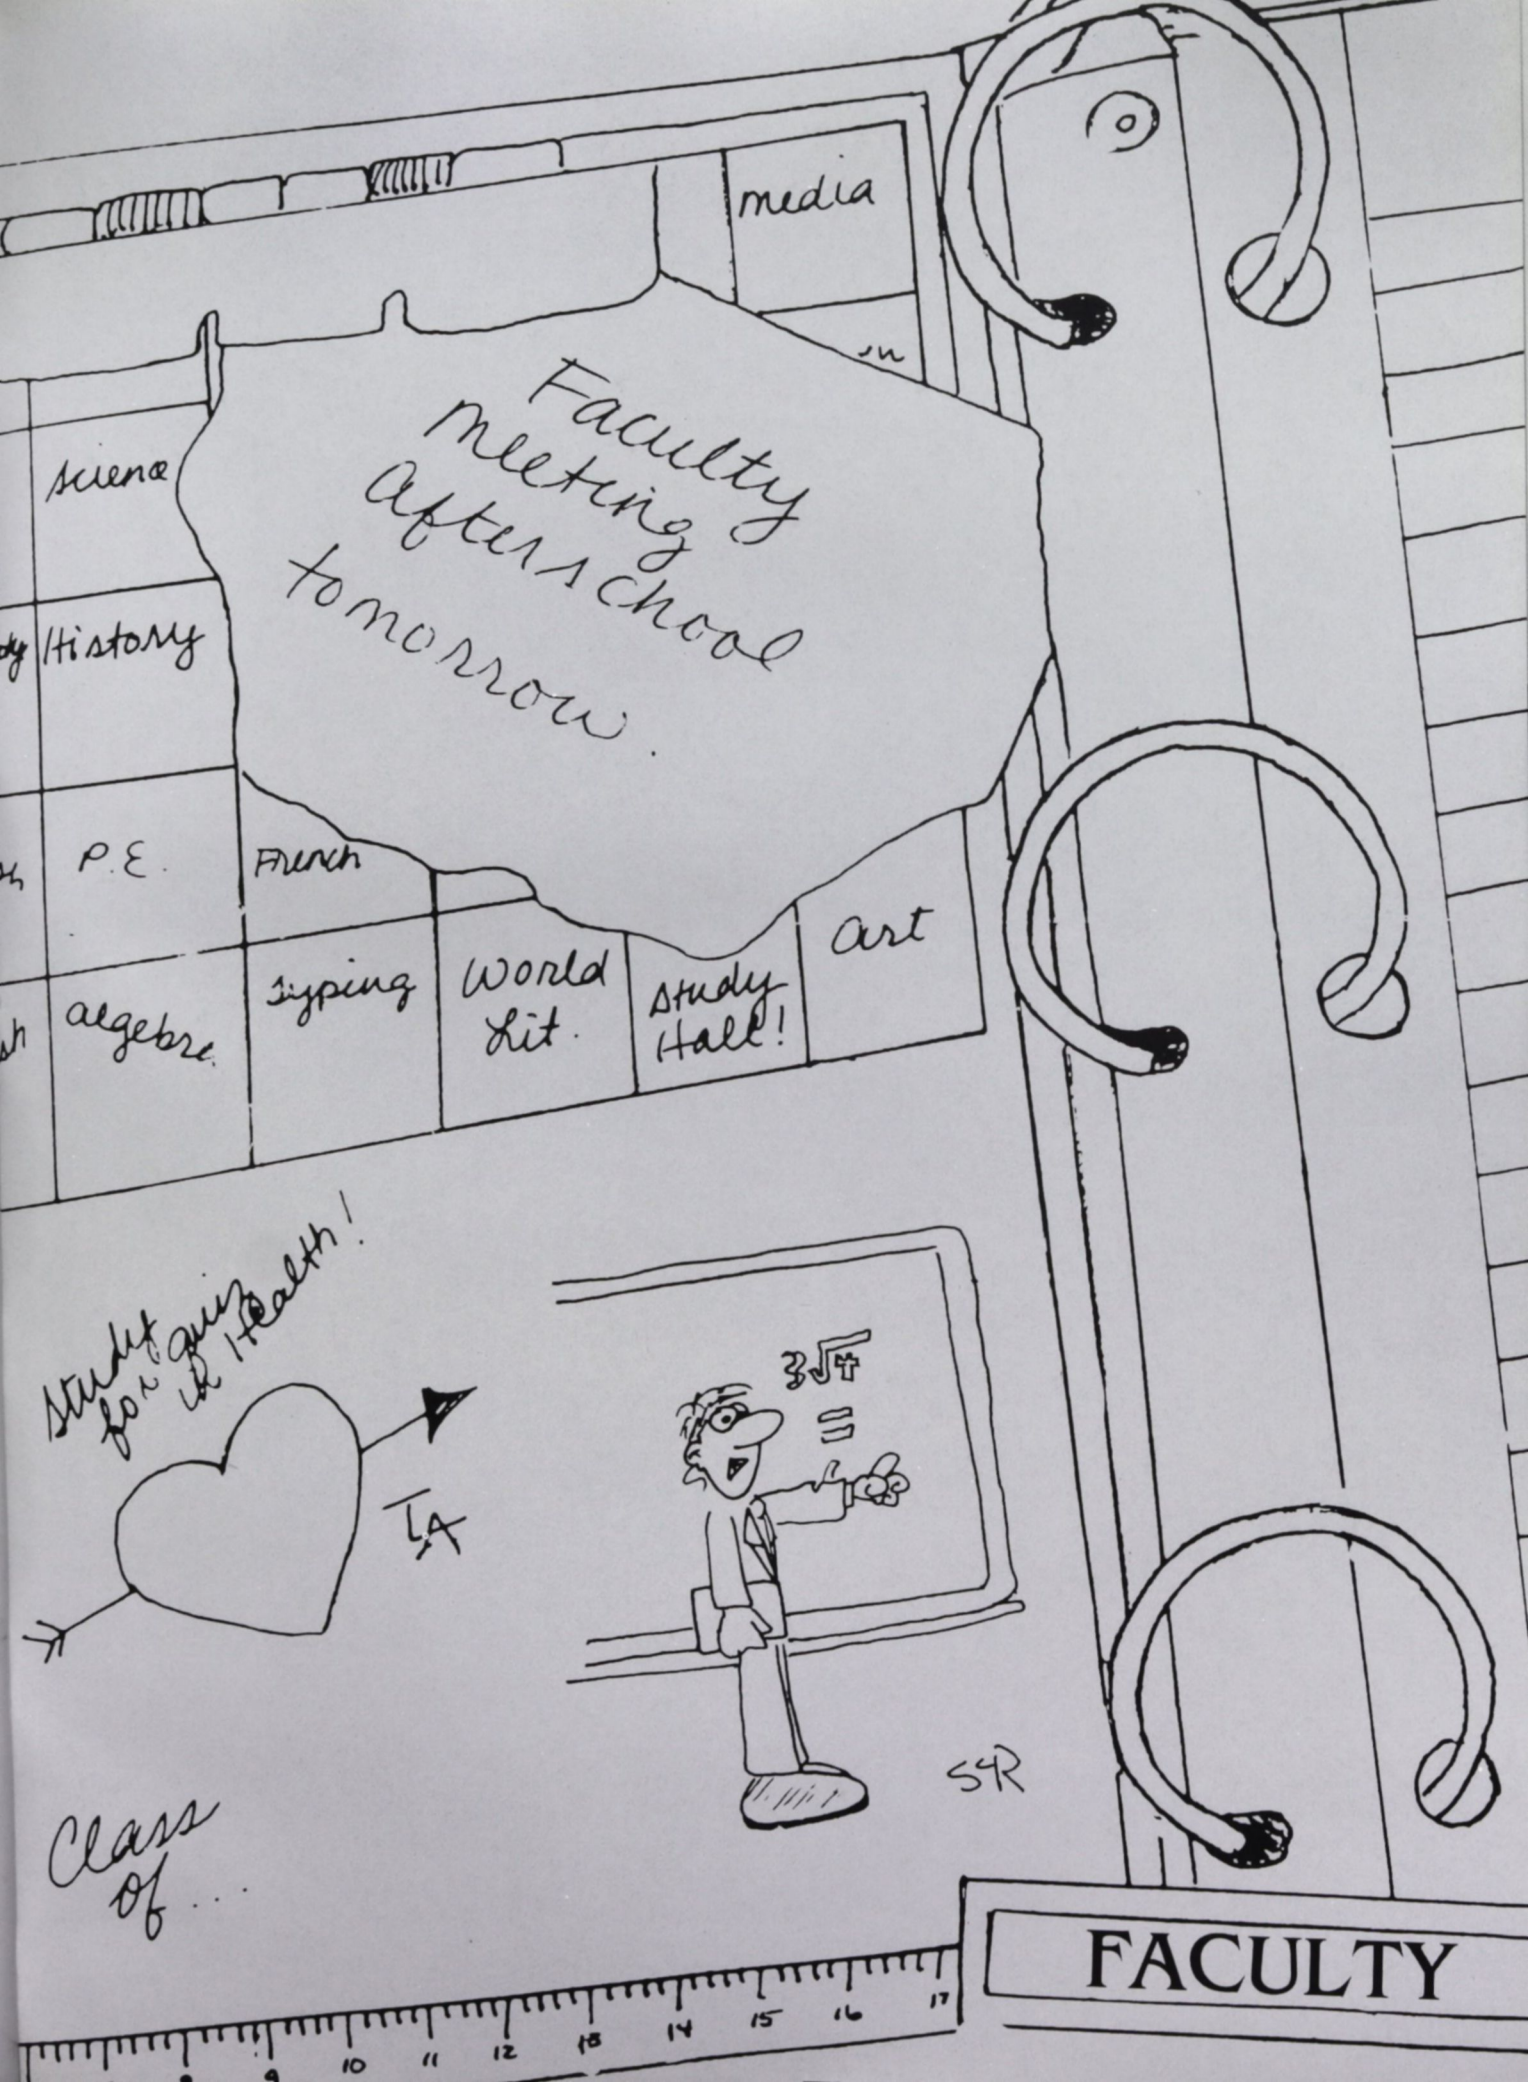 media
Faculty
meeting
after school
tomorrow.
Science
History
P.E.
French
Typing
World
Lit.
Study
Hall!
Art
algebra
Study
for quiz
in Health!
3√4
=
Class
of...
FACULTY
9 10 11 12 13 14 15 16 17